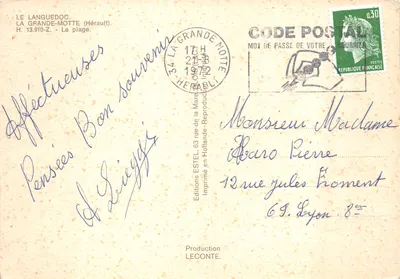 LE LANGUEDOC.
LA GRANDE-MOTTE (Hérault).
H. 13.910-Z. - La plage.
Afféctueuses
Pensées Bon souvenir
34 LA GRANDE MOTTE
17 H
21-8
1972
HERAULT
CODE POSTAL
MOT DE PASSE DE VOTRE COURRIER
0,30
REPUBLIQUE FRANÇAISE
Editions ESTEL, 63 rue de la
Imprimé en Hollande - Reproduction
Monsieur Madame
Haro Pierre
12 rue Jules Froment
69. Lyon 8
Production
LECONTE.